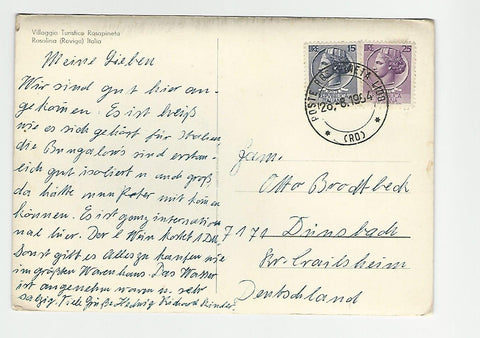 Villaggio Turistico Rosapineta
Rosolina (Rovigo) Italia
Meine Lieben
Wir sind gut hier an-
gekommen. Es ist heiß
wie es sich gehört für Italien
die Bungalows sind erstau-
lich gut isoliert u. auch groß
da hätte nur Peter mit kommen
können. Es ist ganz internatio
nal hier. Der l Wein kostet 1 DM,
Sonst gibt es Alles zu kaufen wie
im größten Warenhaus. Das Wasser
ist angenehm warm u. sehr
salzig. Viele Grüße Hedwig Richard Kinder.
LIRE 15
LIRE 25
28.-8.1964
(RO)
Fam.
Otto Brodtbeck
7171 Dünsbach
Kr. Crailsheim
Deutschland